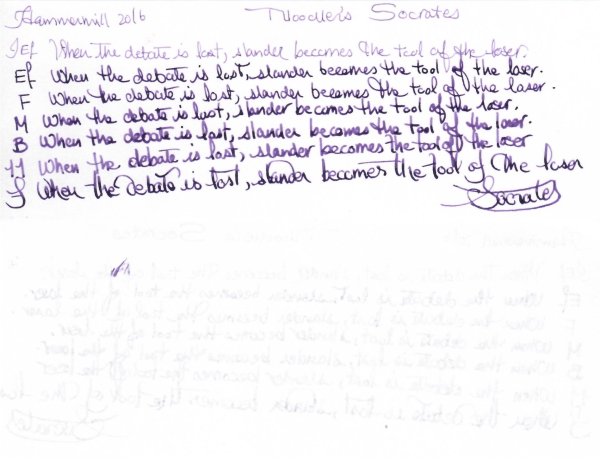 Hammermill 2016 Noodler's Socrates
JEF When the debate is lost, slander becomes the tool of the loser.
EF When the debate is lost, slander becomes the tool of the loser.
F When the debate is lost, slander becomes the tool of the loser.
M When the debate is lost, slander becomes the tool of the loser.
B When the debate is lost, slander becomes the tool of the loser.
1.1 When the debate is lost, slander becomes the tool of the loser
J When the debate is lost, slander becomes the tool of the loser
Socrates